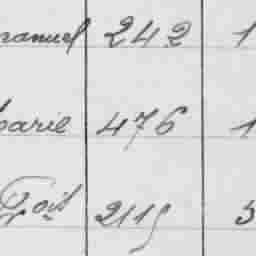 manuel 242 1
Marie 476 1
2115 5